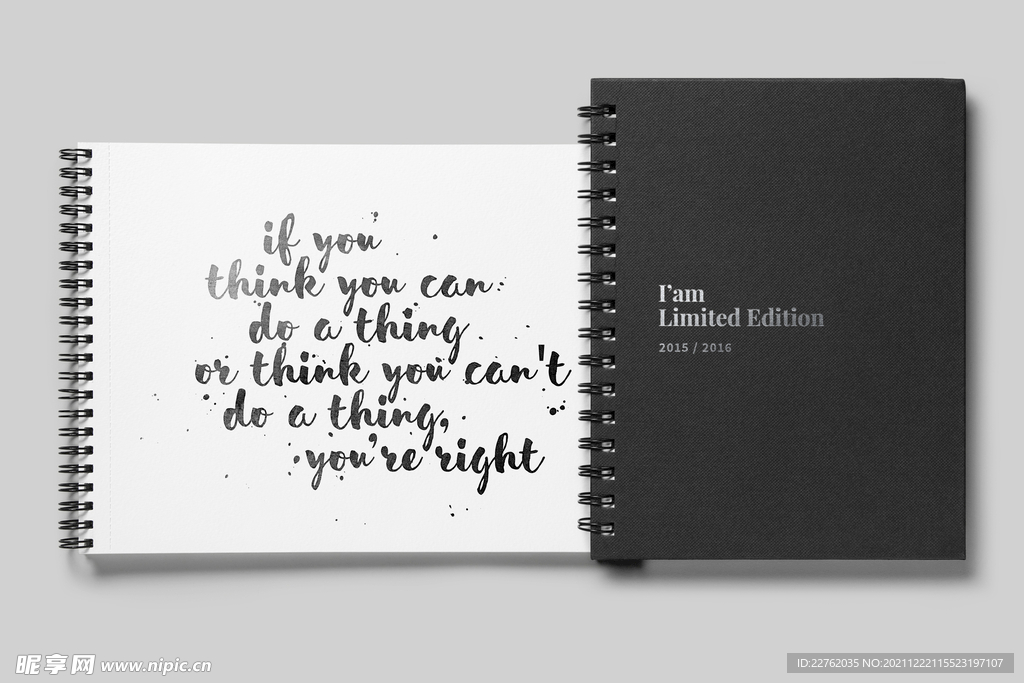 if you
think you can
do a thing
or think you can't
do a thing,
you're right
I'am
Limited Edition
2015 / 2016
昵享网 www.nipic.cn
ID:22762035 NO:20211222115523197107